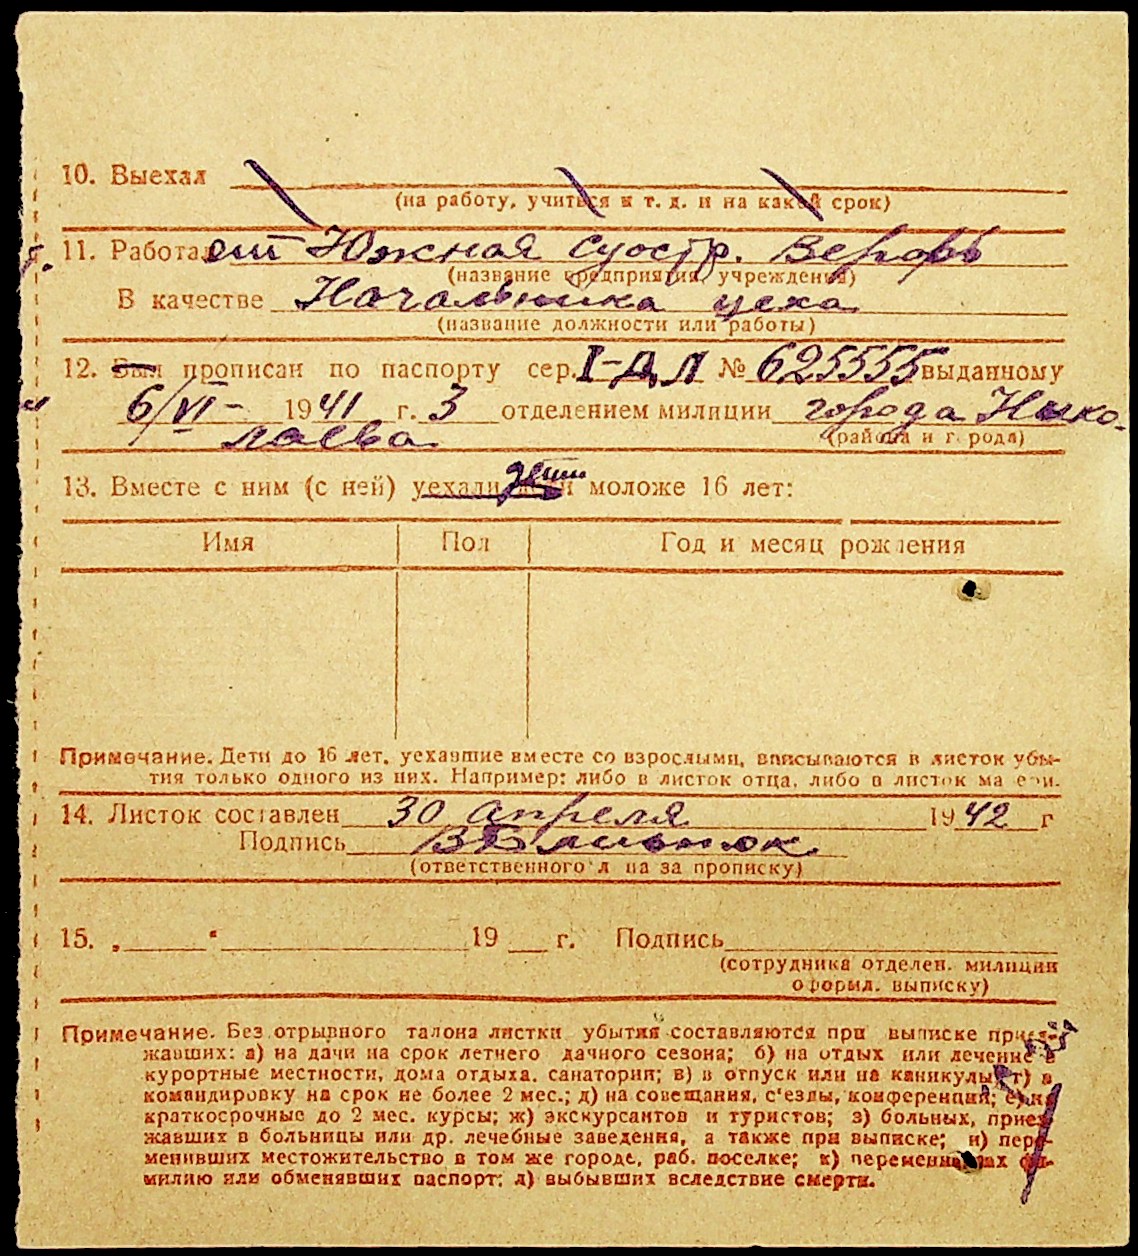 10. Выехал
(на работу, учиться и т. д. и на какой срок)
11. Работает Южная Суостр. Верфь
(название предприятия, учреждения)
В качестве Начальника цеха
(название должности или работы)
12. Был прописан по паспорту сер. I-ДЛ № 625555 выданному
6/VI- 1941 г. 3 отделением милиции города Нико-
лаева (района и г рода)
13. Вместе с ним (с ней) уехали дети моложе 16 лет:
Имя Пол Год и месяц рождения
Примечание. Дети до 16 лет, уехавшие вместе со взрослыми, вписываются в листок убы-
тия только одного из них. Например: либо в листок отца, либо в листок матери.
14. Листок составлен 30 апреля 1942 г
Подпись
(ответственного л ца за прописку)
15. „ “ 19 г. Подпись
(сотрудника отделен. милиции
оформл. выписку)
Примечание. Без отрывного талона листки убытия составляются при выписке приез-
жавших: а) на дачи на срок летнего дачного сезона; б) на отдых или лечение в
курортные местности, дома отдыха, санатории; в) в отпуск или на каникулы; г) в
командировку на срок не более 2 мес.; д) на совещания, с'езды, конференции; е) на
краткосрочные до 2 мес. курсы; ж) экскурсантов и туристов; з) больных, приез-
жавших в больницы или др. лечебные заведения, а также при выписке; и) пере-
менивших местожительство в том же городе, раб. поселке; к) переменивших фа-
милию или обменявших паспорт; л) выбывших вследствие смерти.